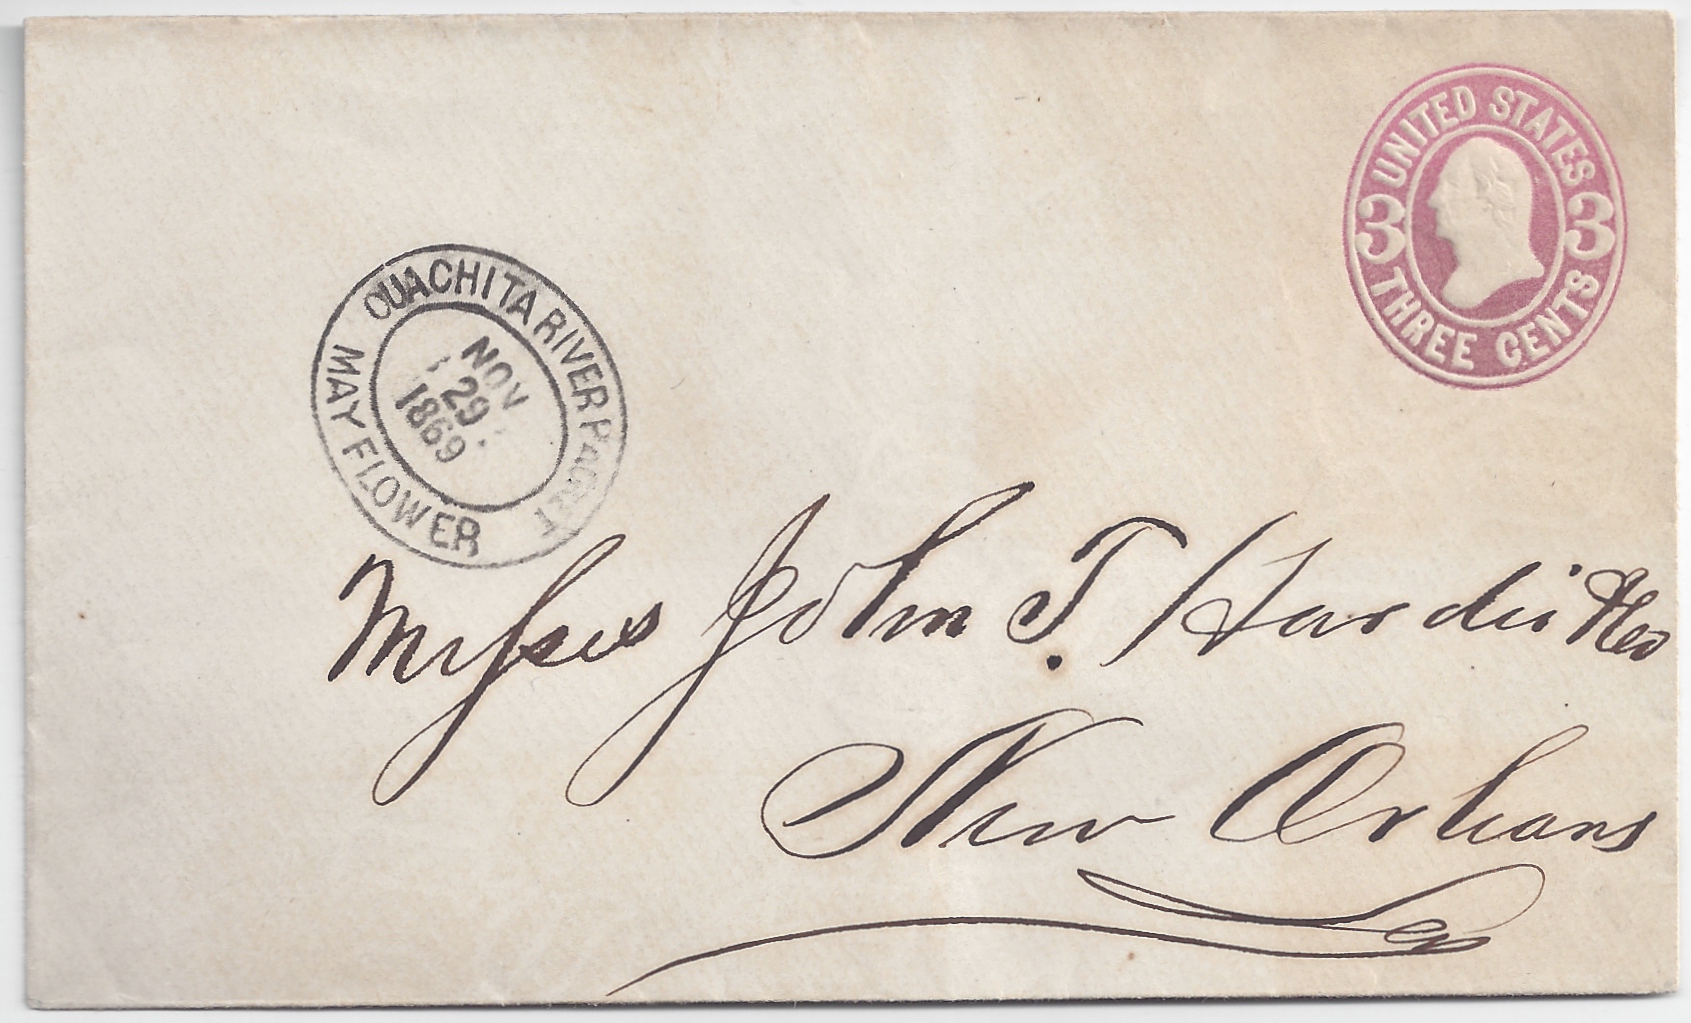 UNITED STATES
3 3
THREE CENTS
OUACHITA RIVER PACKET
NOV
29
1869
MAY FLOWER
Messes John T. Hardie &Co
New Orleans